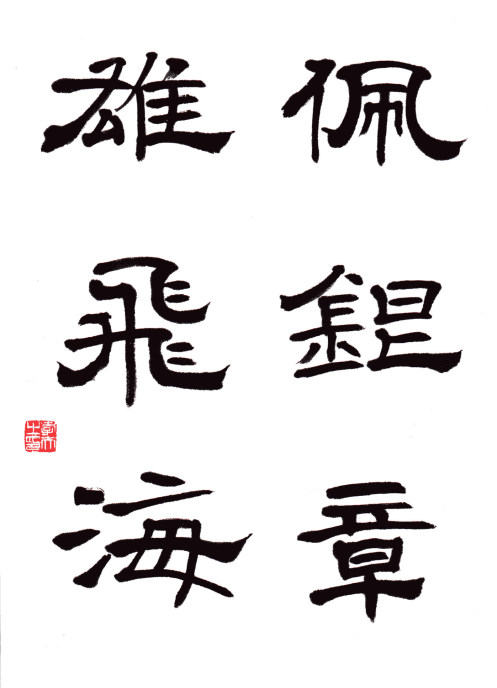 佩銀章
雄飛海